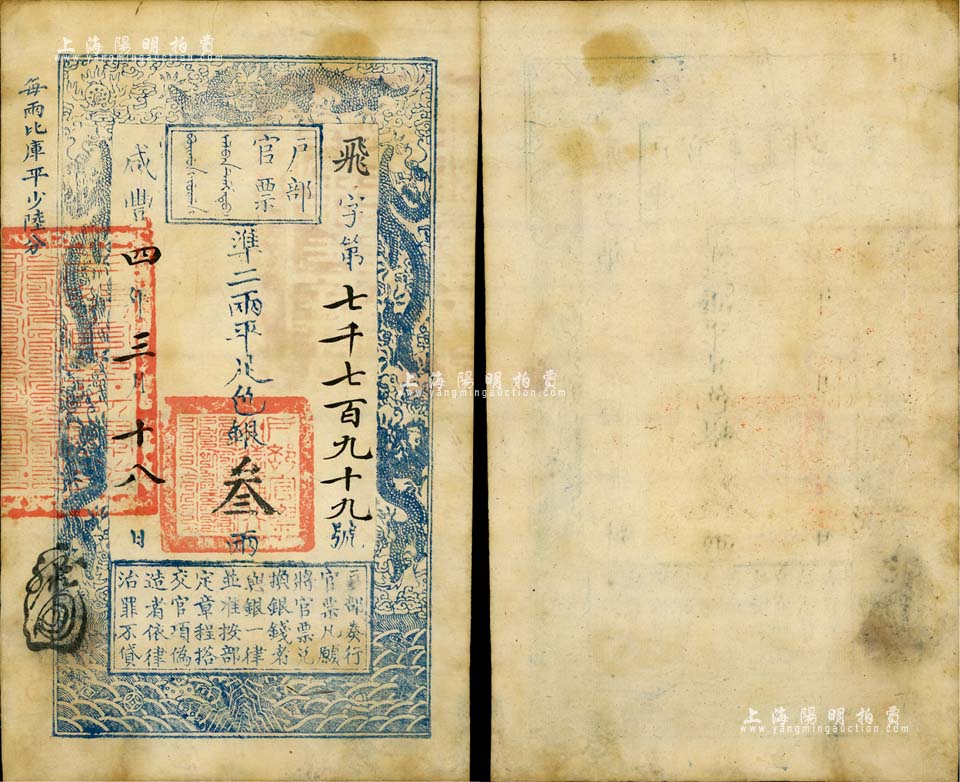 上海陽明拍賣
www.yangmingauction.com
每兩比庫平少陸分
戶部
官票
飛字第七千七百九十九號
準二兩平足色銀叁兩
咸豐四年三月十八日
戶部奏行
官票凡願
將官票兌
換銀錢者
與銀一律
並准按部
定章程搭
交官項偽
造者依律
治罪不貸
上海陽明拍賣
www.yangmingauction.com
上海陽明拍賣
www.yangmingauction.com